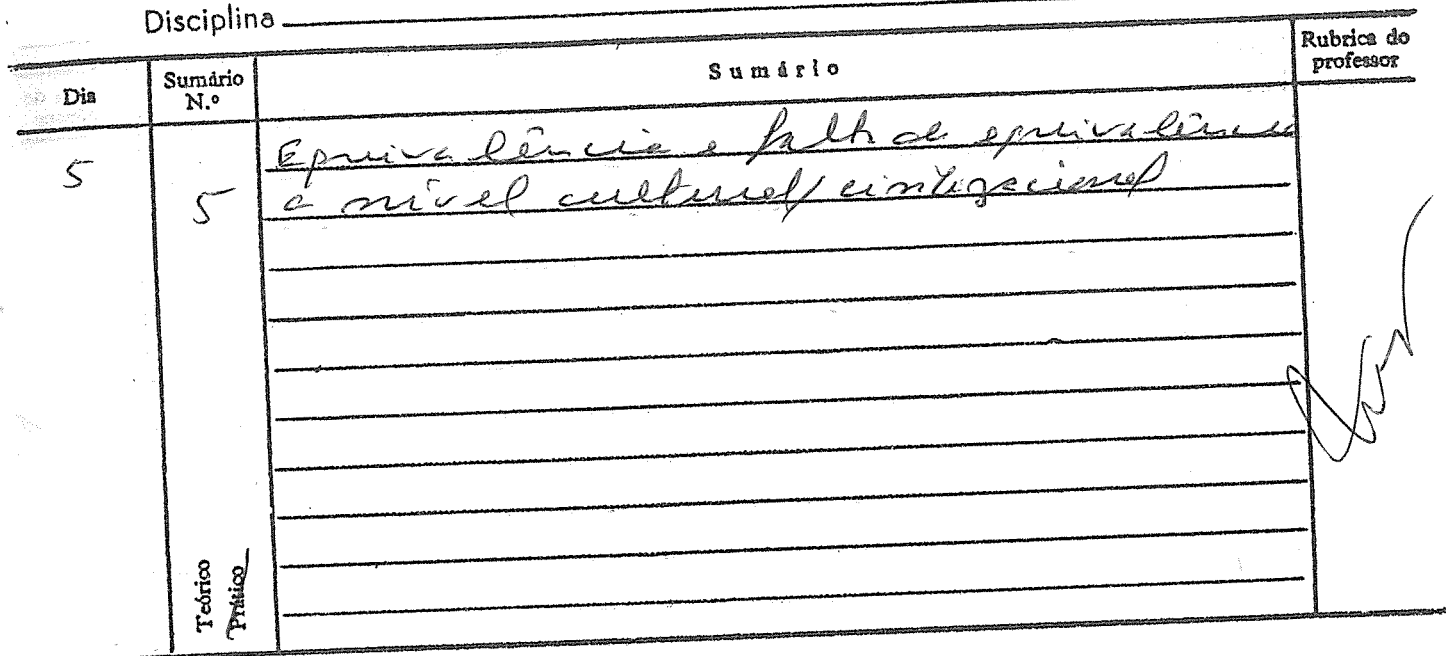 Disciplina
Dia
Sumário N.º
Sumário
Rubrica do professor
5
5
Equivalência e falta de equivalência
a nível cultural/civilizacional
Teórico
Prático